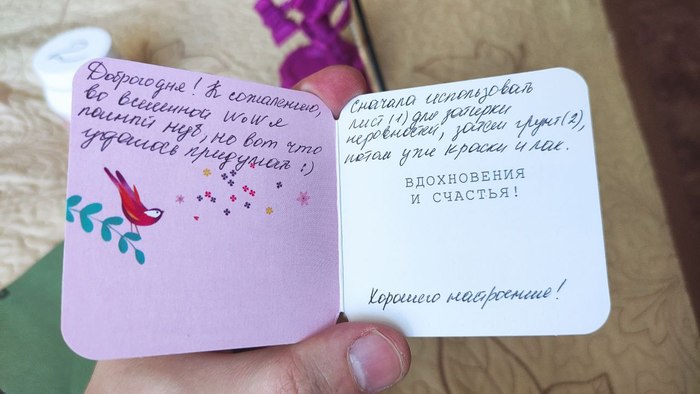 Доброго дня! К сожалению,
во вселенной WoW я
полный нуб, но вот что
удалось придумать :)
сначала использовать
лист (1) для затирки
неровностей, затем грунт(2),
потом уже краски и лак.
ВДОХНОВЕНИЯ
И СЧАСТЬЯ!
Хорошего настроение!
2